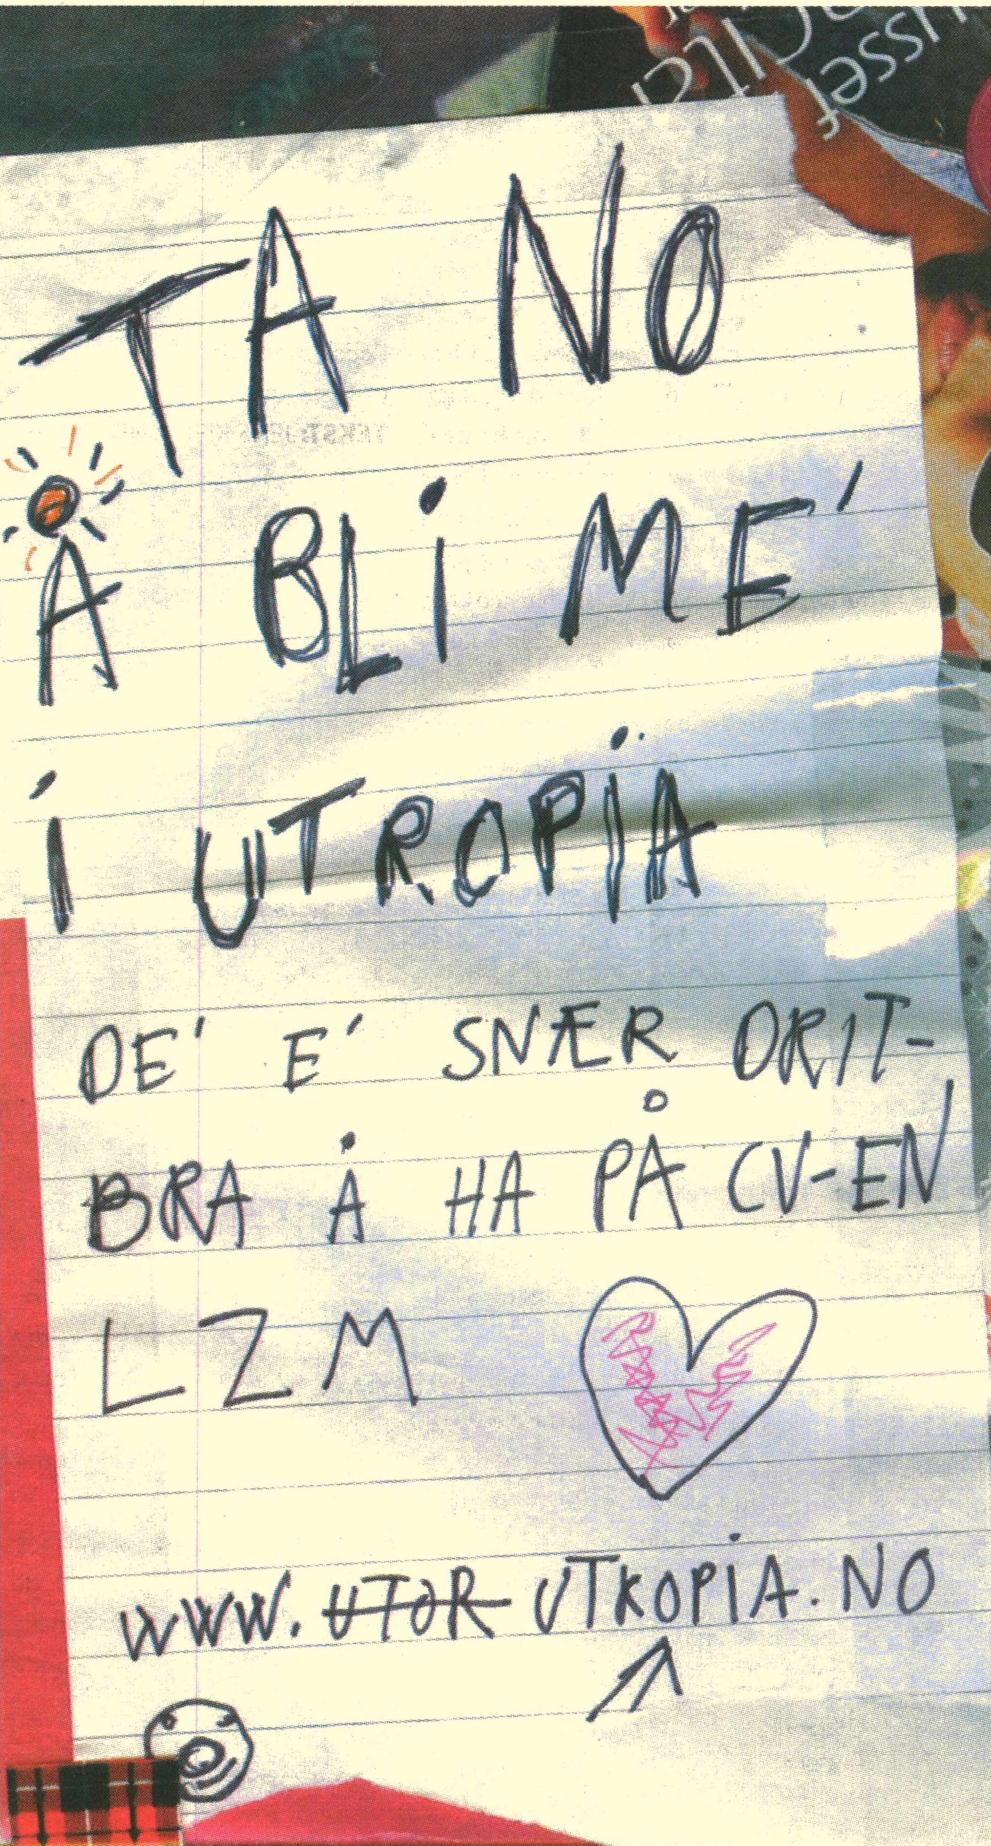 TA NO
Å BLI ME'
I UTROPIA
DE' E' SNÆR DRIT-
BRA Å HA PÅ CV-EN
LZM
WWW. UTOR UTROPIA.NO